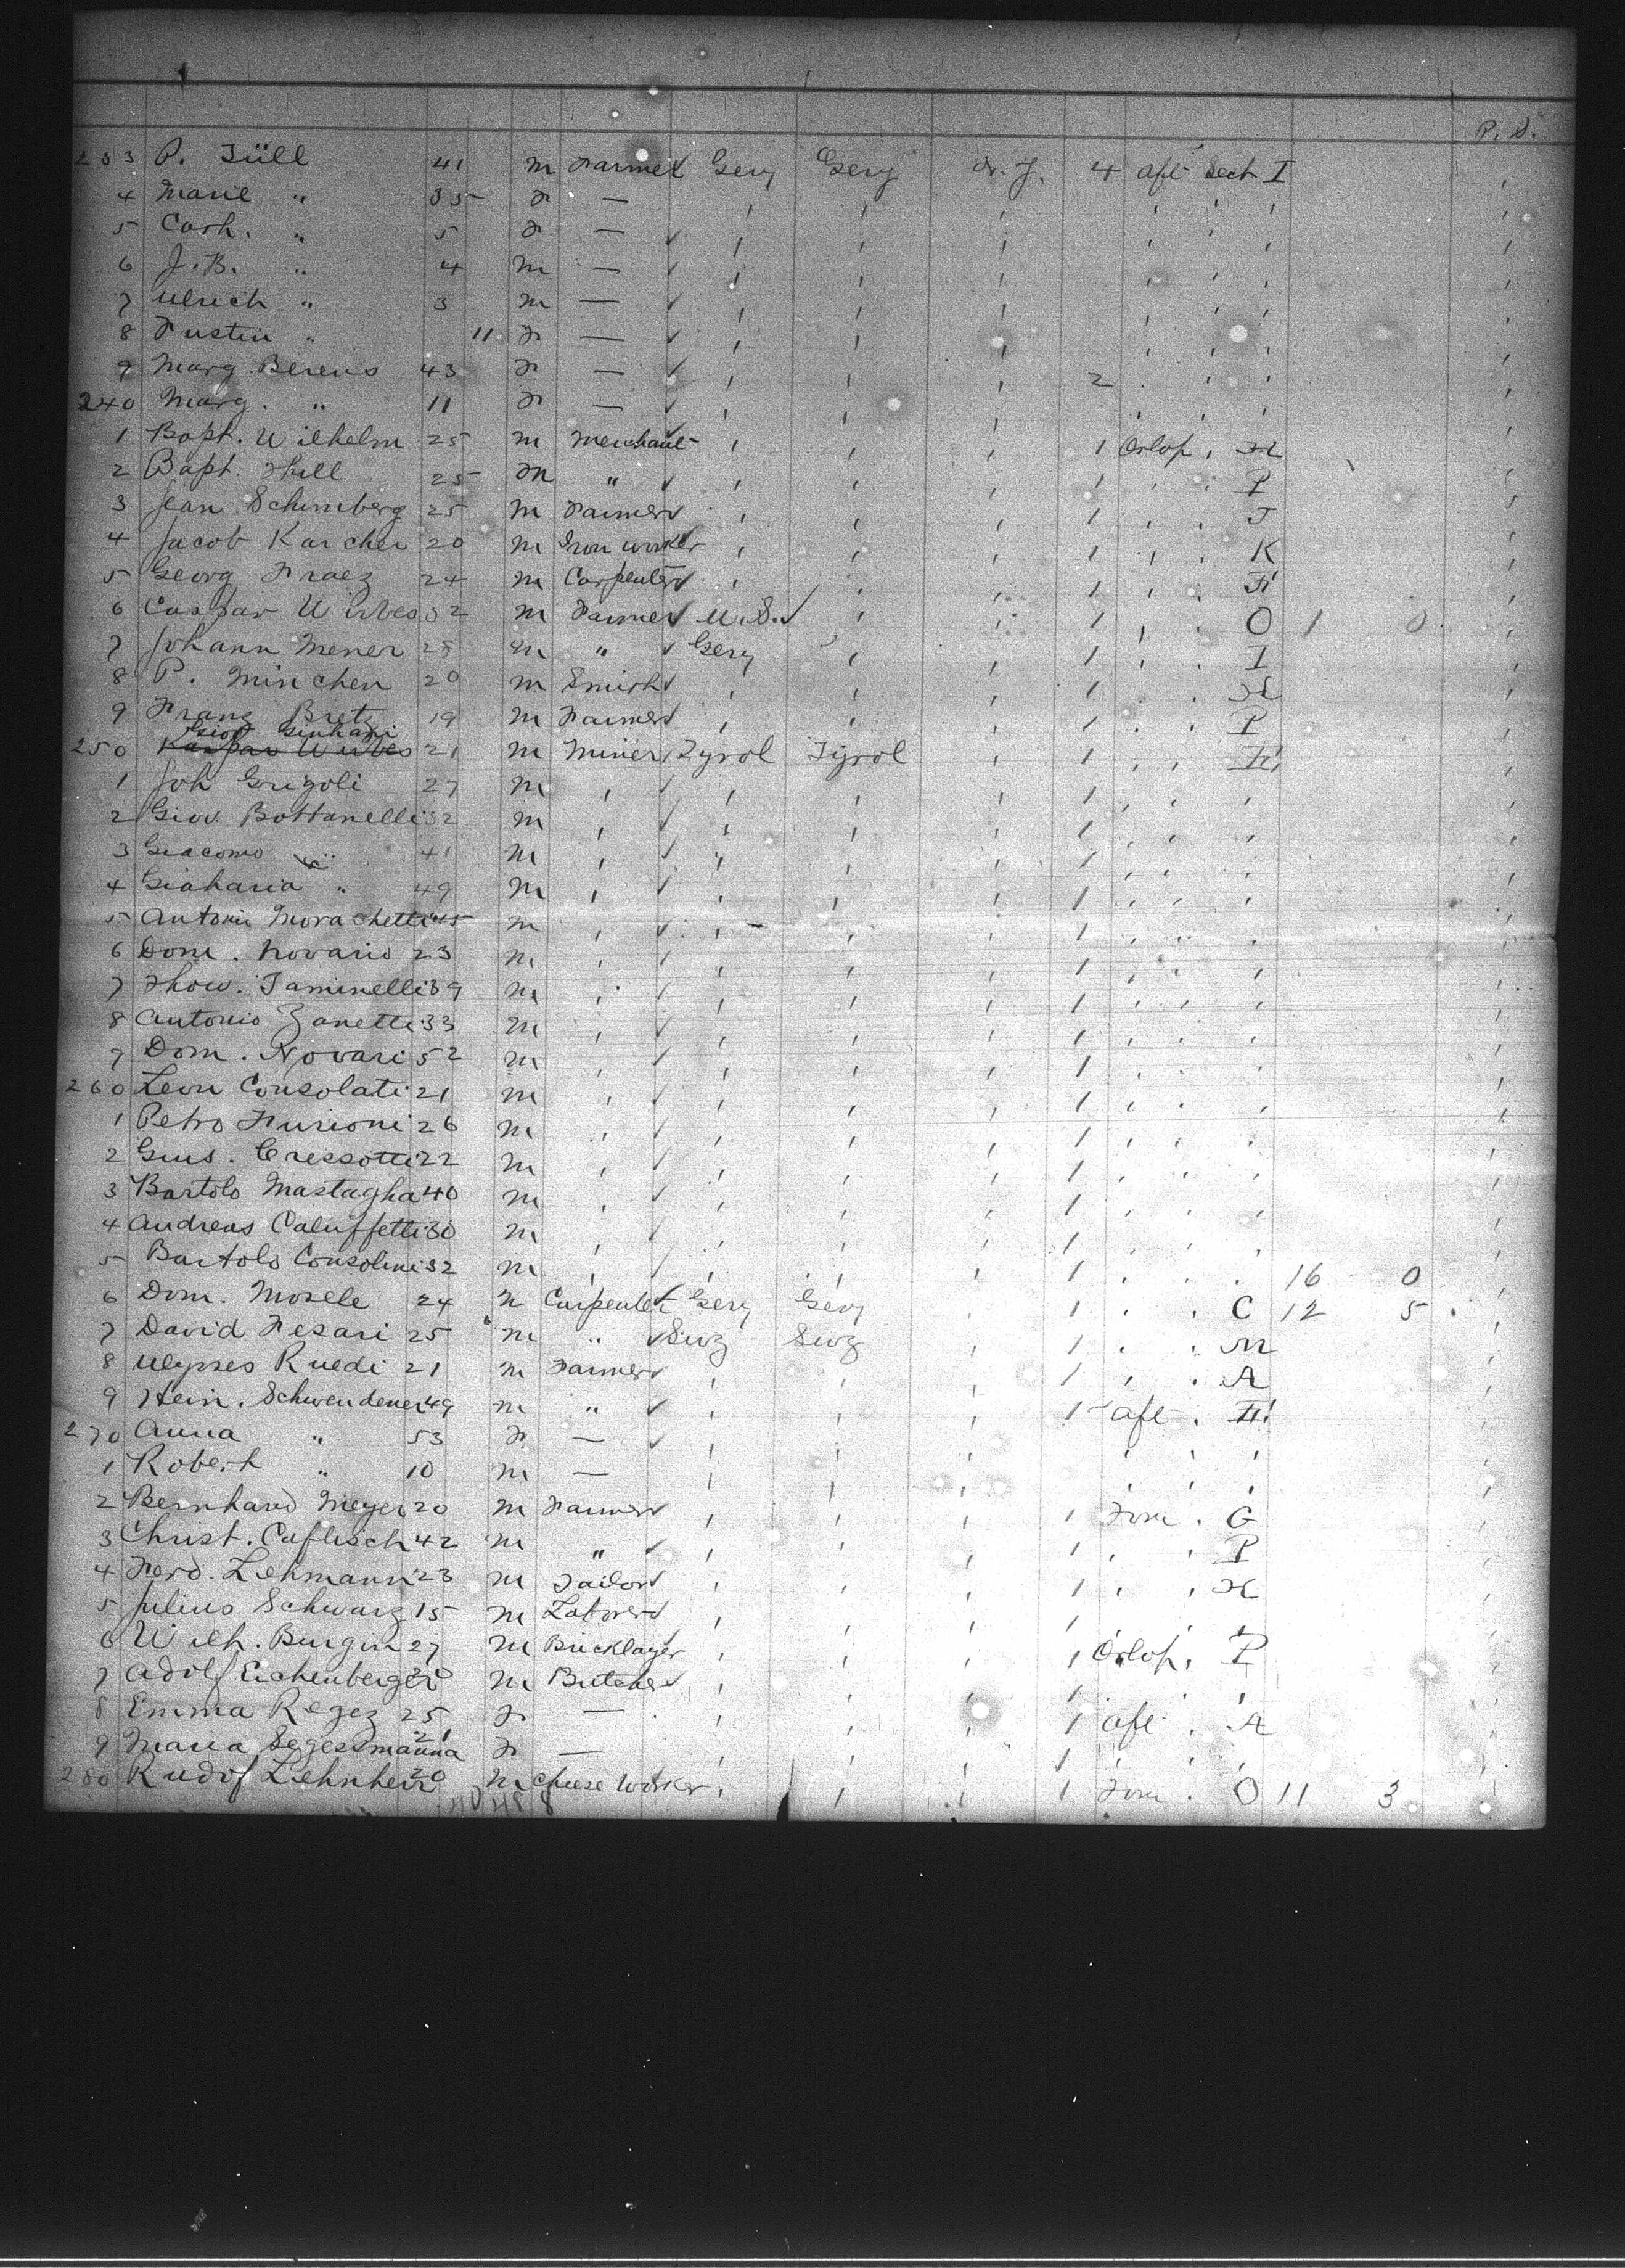 P. D.
233 P. Tüll 41 m Farmer Gery Gery N. Y. 4 aft Sect I
4 Marie " 35 F —
5 Cath. " 5 F —
6 J. B. " 4 m —
7 Ulrich " 3 m —
8 Justin " 11 F —
9 Marg. Berens 43 F — 2
240 Marg. " 11 F —
1 Bapt. Wilhelm 25 m Merchant 1 Orlop H
2 Bapt. Hill 25 m " 1 P
3 Jean Schimberg 25 m Farmer 1 J
4 Jacob Karcher 20 m Iron worker 1 K
5 Georg Fraez 24 m Carpenter 1 F
6 Caspar Wirbes 32 m Farmer U.S. 1 O 1 0
7 Johann Mener 28 m " Gery 1 I
8 P. Minchen 20 m Smith 1 H
9 Franz Bretz 19 m Farmer 1 P
250 Kaspar Wirbes 21 m Miner Tyrol Tyrol 1
1 Joh Grigoli 27 m 1
2 Giov. Bottanelli 32 m 1
3 Giacomo " 41 m 1
4 Giaharia " 49 m 1
5 Antoni Morachetti 45 m 1
6 Dom. Novario 23 m 1
7 Taminelli 39 m 1
8 Antonio Zanetti 33 m 1
9 Dom. Novari 52 m 1
260 Leon Consolati 21 m 1
1 Petro Furioni 26 m 1
2 Gius. Cressotti 22 m 1
3 Bartolo Mastagha 40 m 1
4 Andreas Caluffetti 30 m 1
5 Bartolo Consolini 32 m 1 16 0
6 Dom. Mosele 24 m Carpenter Gery Gery 1 C 12 5
7 David Fesari 25 m " Swz Swz 1 M
8 Ulysses Ruedi 21 m Farmer 1 A
9 Hein. Schwendener 49 m " 1 aft
270 Anna " 53 F —
1 Robert " 10 m —
2 Bernhard Meyer 20 m Farmer 1 Forw. G
3 Christ. Caflisch 42 m " 1 P
4 Ferd. Lehmann 23 m Tailor 1 H
5 Julius Schwarz 15 m Laborer 1
6 Wilh. Burgin 27 m Bricklayer 1 Orlop P
7 Adolf Eichenberger m Butcher 1
8 Emma Regez 25 F — 1 aft A
9 Maria Segessmanna 21 F — 1
280 Rudolf Lehnherr 20 m Cheese worker 1 Forw. O 11 3